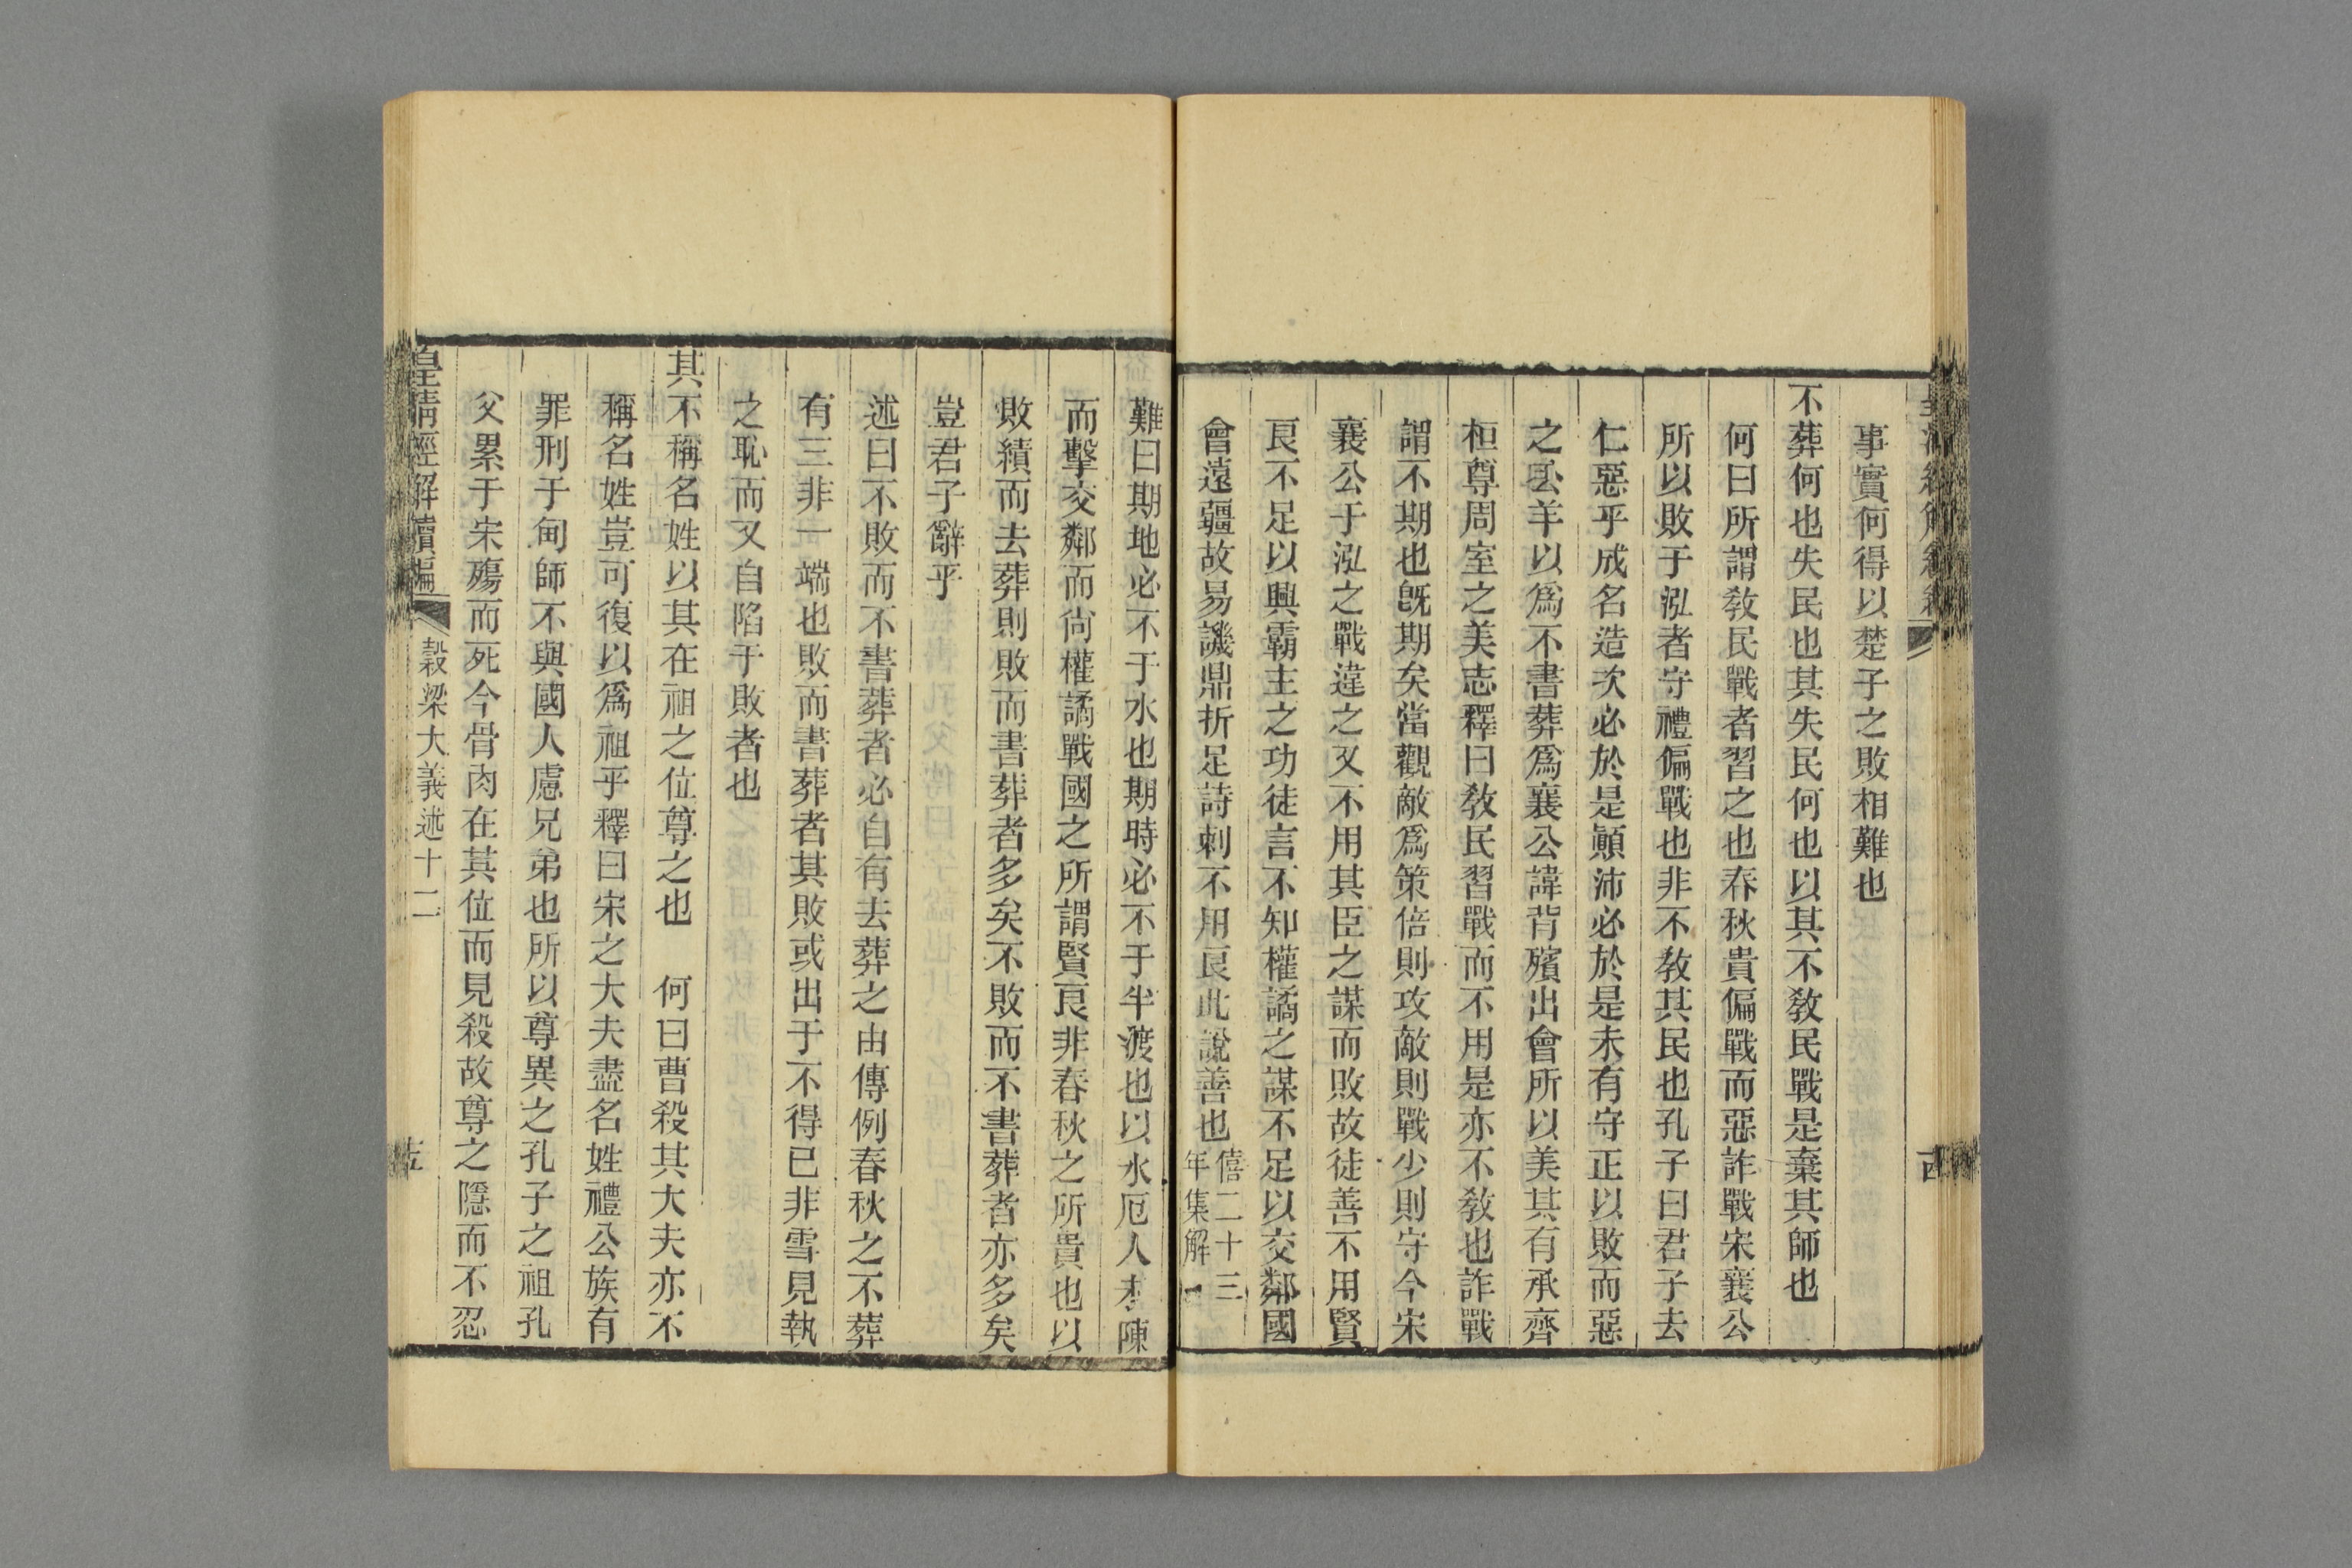 事實何得以楚子之敗相難也
不葬何也失民也其失民何也以其不敎民戰是棄其師也
何曰所謂敎民戰者習之也春秋貴偏戰而惡詐戰宋襄公
所以敗于泓者守禮偏戰也非不敎其民也孔子曰君子去
仁惡乎成名造次必於是顚沛必於是未有守正以敗而惡
之公羊以爲不書葬爲襄公諱背殯出會所以美其有承齊
桓尊周室之美志釋曰敎民習戰而不用是亦不敎也詐戰
謂不期也旣期矣當觀敵爲策倍則攻敵則戰少則守今宋
襄公于泓之戰違之又不用其臣之謀而敗故徒善不用賢
良不足以興霸主之功徒言不知權譎之謀不足以交鄰國
會遠疆故易譏鼎折足詩刺不用良此說善也
僖二十三
年集解
難曰期地必不于水也期時必不于半渡也以水厄人未陳
而擊交鄰而尚權譎戰國之所謂賢良非春秋之所貴也以
敗績而去葬則敗而書葬者多矣不敗而不書葬者亦多矣
豈君子辭乎
述曰不敗而不書葬者必自有去葬之由傳例春秋之不葬
有三非一端也敗而書葬者其敗或出于不得已非雪見執
之恥而又自陷于敗者也
其不稱名姓以其在祖之位尊之也　何曰曹殺其大夫亦不
稱名姓豈可復以爲祖乎釋曰宋之大夫盡名姓禮公族有
罪刑于甸師不與國人慮兄弟也所以尊異之孔子之祖孔
父累于宋殤而死今骨肉在其位而見殺故尊之隱而不忍
皇淸經解續編
穀梁大義述十二